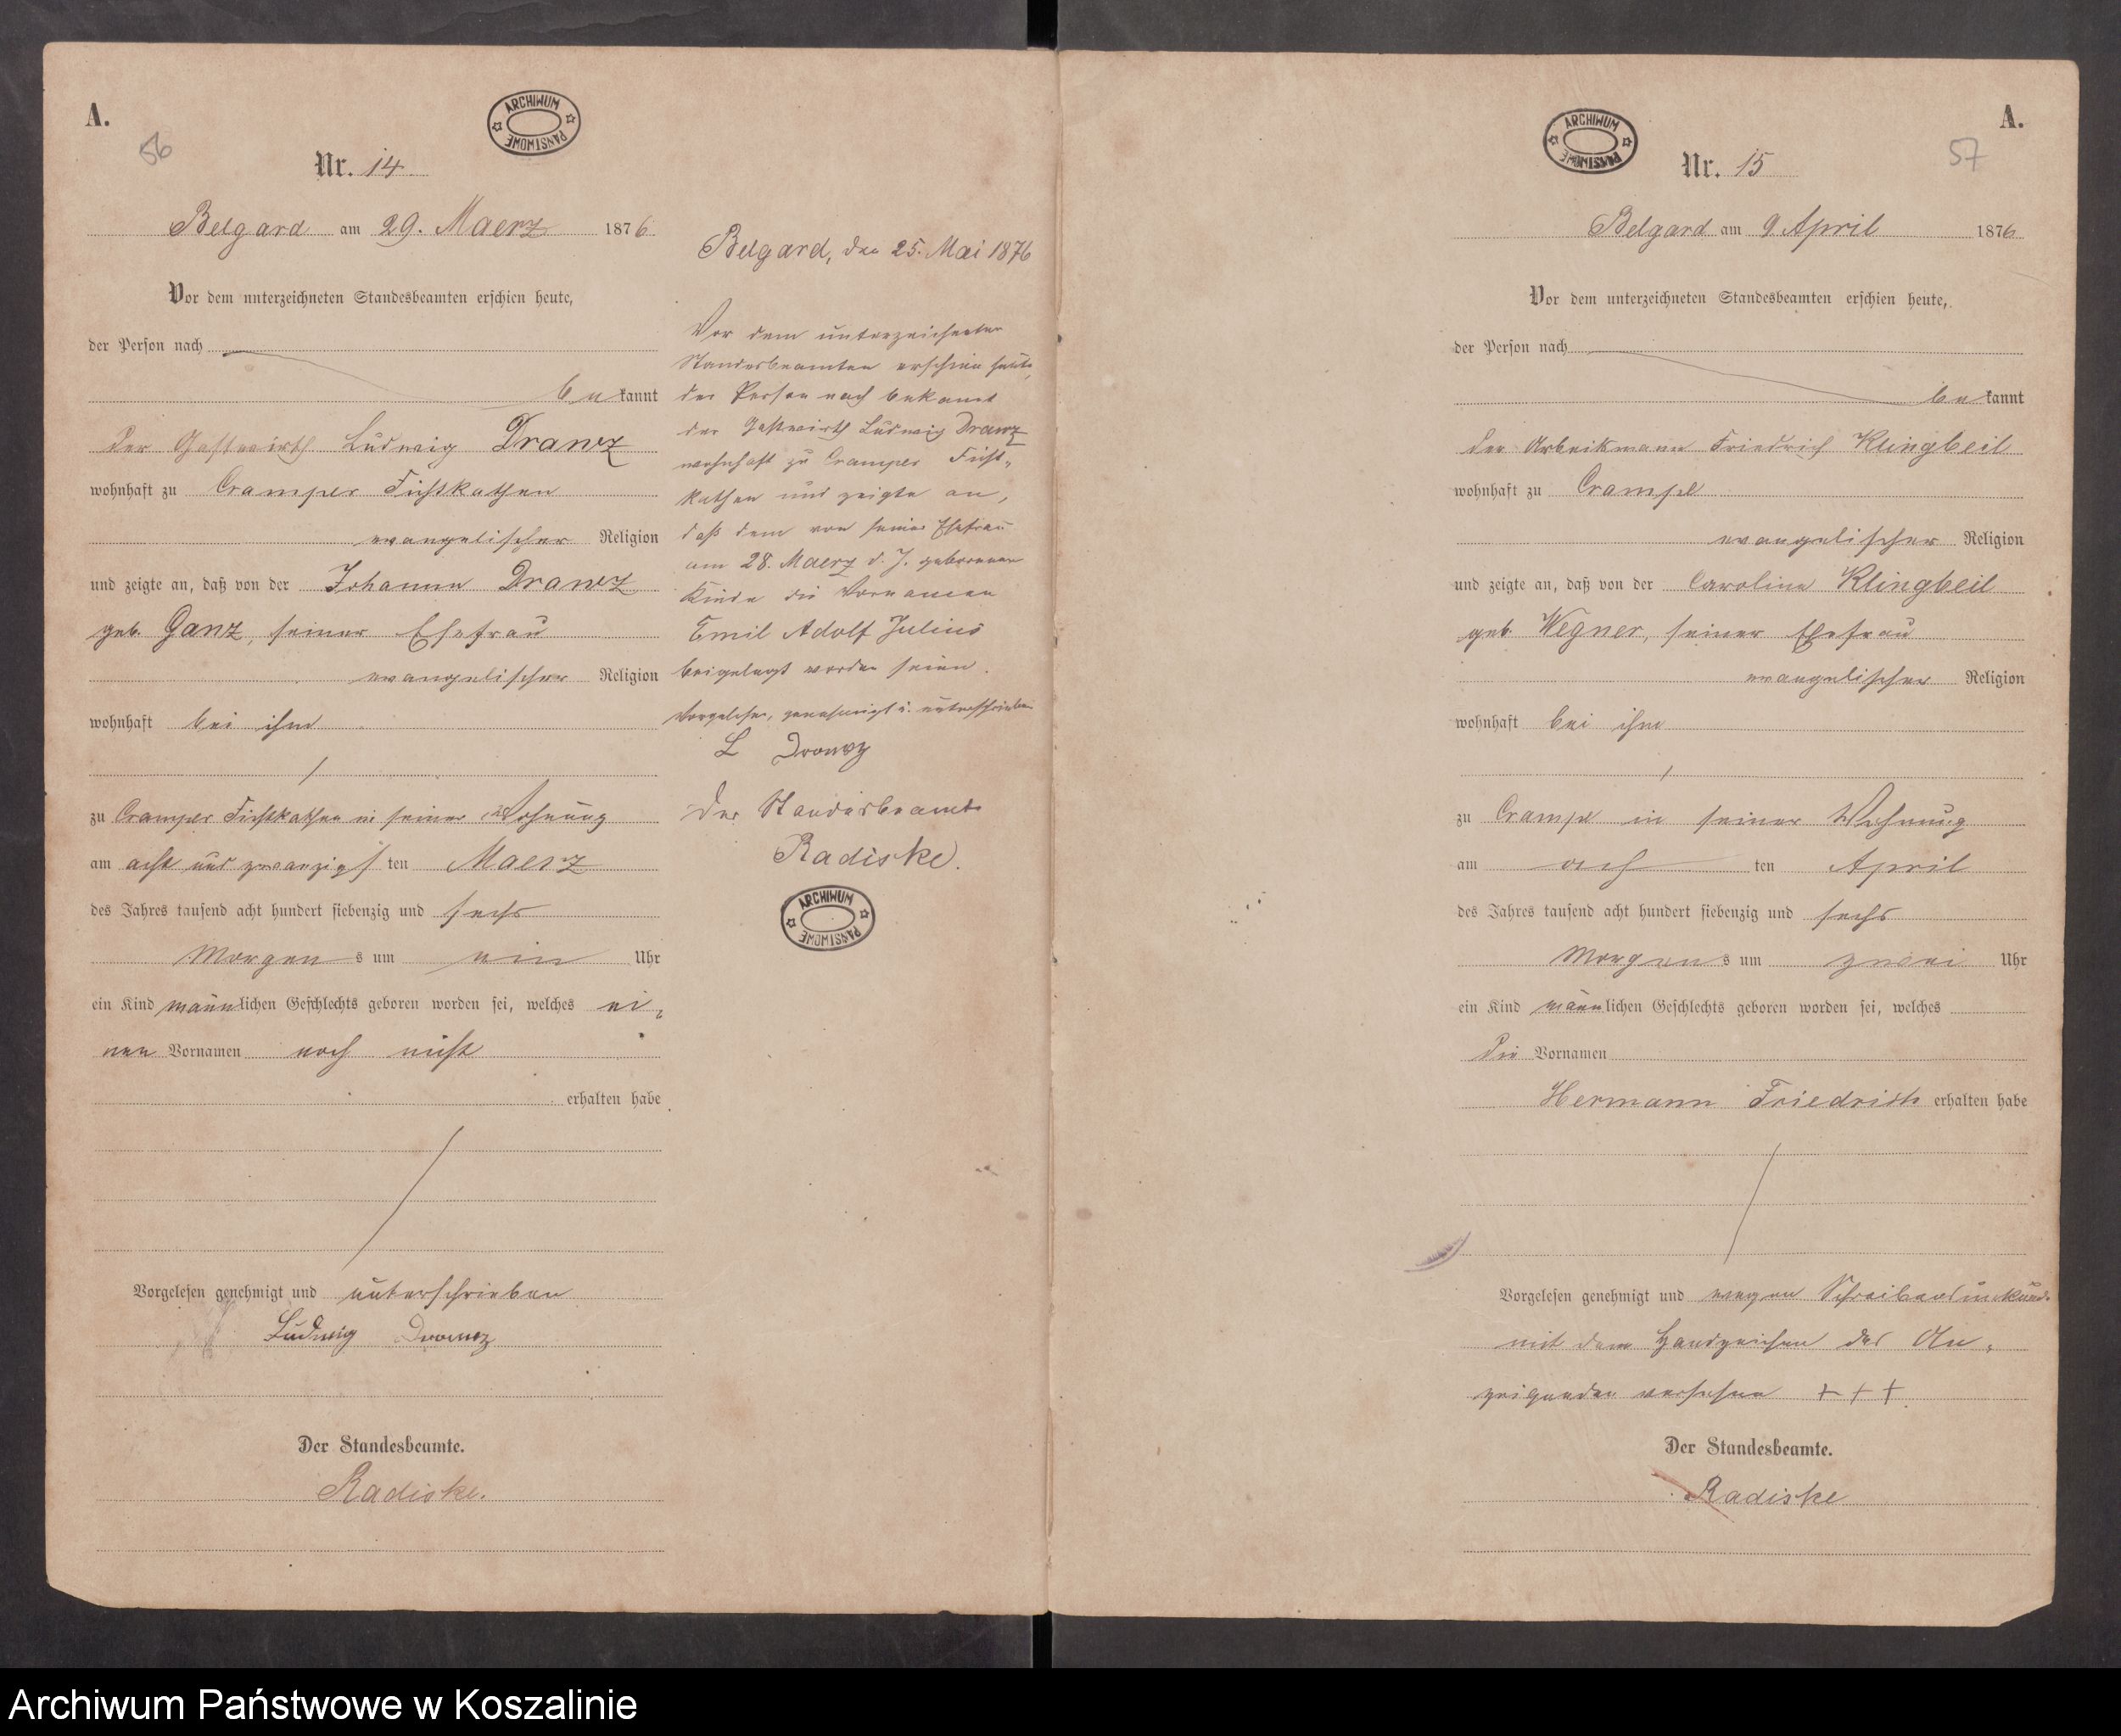 A.
56
ARCHIWUM PAŃSTWOWE
Nr. 14
Belgard am 29. Maerz 1876
Vor dem unterzeichneten Standesbeamten erschien heute,
der Person nach
bekannt
der Gastwirth Ludwig Drawz
wohnhaft zu Cramper Fichtkathen
evangelischer Religion
und zeigte an, daß von der Johanne Drawz
geb. Ganz, seiner Ehefrau
evangelischer Religion
wohnhaft bei ihm
zu Cramper Fichtkathen in seiner Wohnung
am acht und zwanzigsten Maerz
des Jahres tausend acht hundert siebenzig und sechs
Morgens um ein Uhr
ein Kind männlichen Geschlechts geboren worden sei, welches ei-
nen Vornamen noch nicht
erhalten habe
Vorgelesen genehmigt und unterschrieben
Ludwig Drawz
Der Standesbeamte.
Radiske.
Belgard, den 25. Mai 1876
Vor dem unterzeichneten
Standesbeamten erschien heute,
der Person nach bekannt
der Gastwirth Ludwig Drawz
wohnhaft zu Cramper Ficht-
kathen und zeigte an,
daß dem von seiner Ehefrau
am 28. Maerz d. J. geborenen
Kinde die Vornamen
Emil Adolf Julius
beigelegt worden seien.
Vorgelesen, genehmigt u. unterschrieben
L Drawz
Der Standesbeamte
Radiske.
ARCHIWUM PAŃSTWOWE
A.
57
ARCHIWUM PAŃSTWOWE
Nr. 15
Belgard am 9 April 1876
Vor dem unterzeichneten Standesbeamten erschien heute,
der Person nach
bekannt
der Arbeitsmann Friedrich Klingbeil
wohnhaft zu Crampe
evangelischer Religion
und zeigte an, daß von der Caroline Klingbeil
geb. Wegner, seiner Ehefrau
evangelischer Religion
wohnhaft bei ihm
zu Crampe in seiner Wohnung
am ach ten April
des Jahres tausend acht hundert siebenzig und sechs
Morgens um zwei Uhr
ein Kind männlichen Geschlechts geboren worden sei, welches
die Vornamen
Hermann Friedrich erhalten habe
Vorgelesen genehmigt und wegen
mit dem Handzeichen des An-
zeigenden versehen + + +
Der Standesbeamte.
Radiske
Archiwum Państwowe w Koszalinie